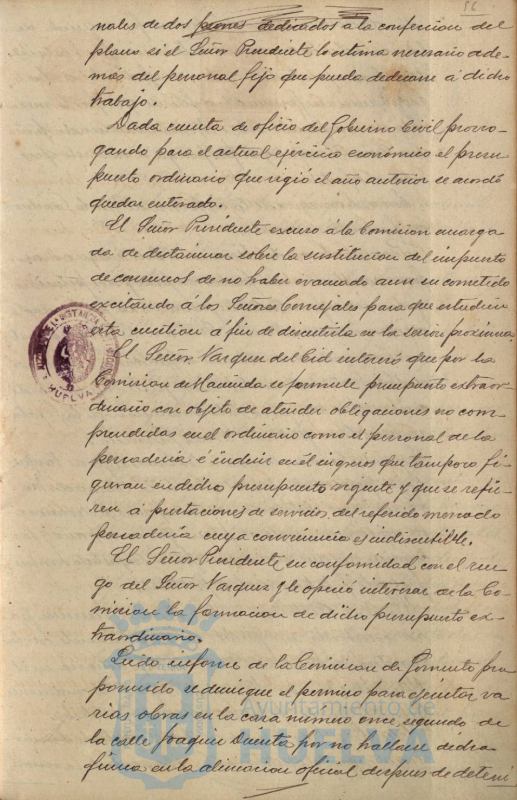 56
nales de dos peones dedicados a la confección del
plano si el Señor Presidente lo estima necesario ade-
más del personal fijo que pueda dedicarse á dicho
trabajo.
Dada cuenta de oficio del Gobierno Civil prorro-
gando para el actual ejercicio económico el presu-
puesto ordinario que rigió el año anterior se acordó
quedar enterado.
El Señor Presidente escusó á la Comision encarga-
da de dictaminar sobre la sustitucion del impuesto
de consumos de no haber evacuado aun su cometido
excitando á los Señores Concejales para que estudien
esta cuestion á fin de discutirla en la sesion proxima.
El Señor Vazquez del Cid interesó que por la
Comision de Hacienda se formule presupuesto extraor-
dinario con objeto de atender obligaciones no com-
prendidas en el ordinario como el personal de la
pescaderia é incluir en él ingresos que tampoco fi-
guran en dicho presupuesto vigente y que se refie-
ren á prestaciones de servicios del referido mercado
pescadería cuya conveniencia es indiscutible.
El Señor Presidente su conformidad con el rue-
go del Señor Vazquez y le ofreció interesar de la Co-
mision la formacion de dicho presupuesto ex-
traordinario.
Leido informe de la Comision de Fomento pro-
poniendo se deniegue el permiso para ejecutar va-
rias obras en la casa número once segundo de
la calle Joaquin Duenta por no hallarse dicha
finca en la alineacion oficial despues de deteni
HUELVA
Ayuntamiento de
HUELVA